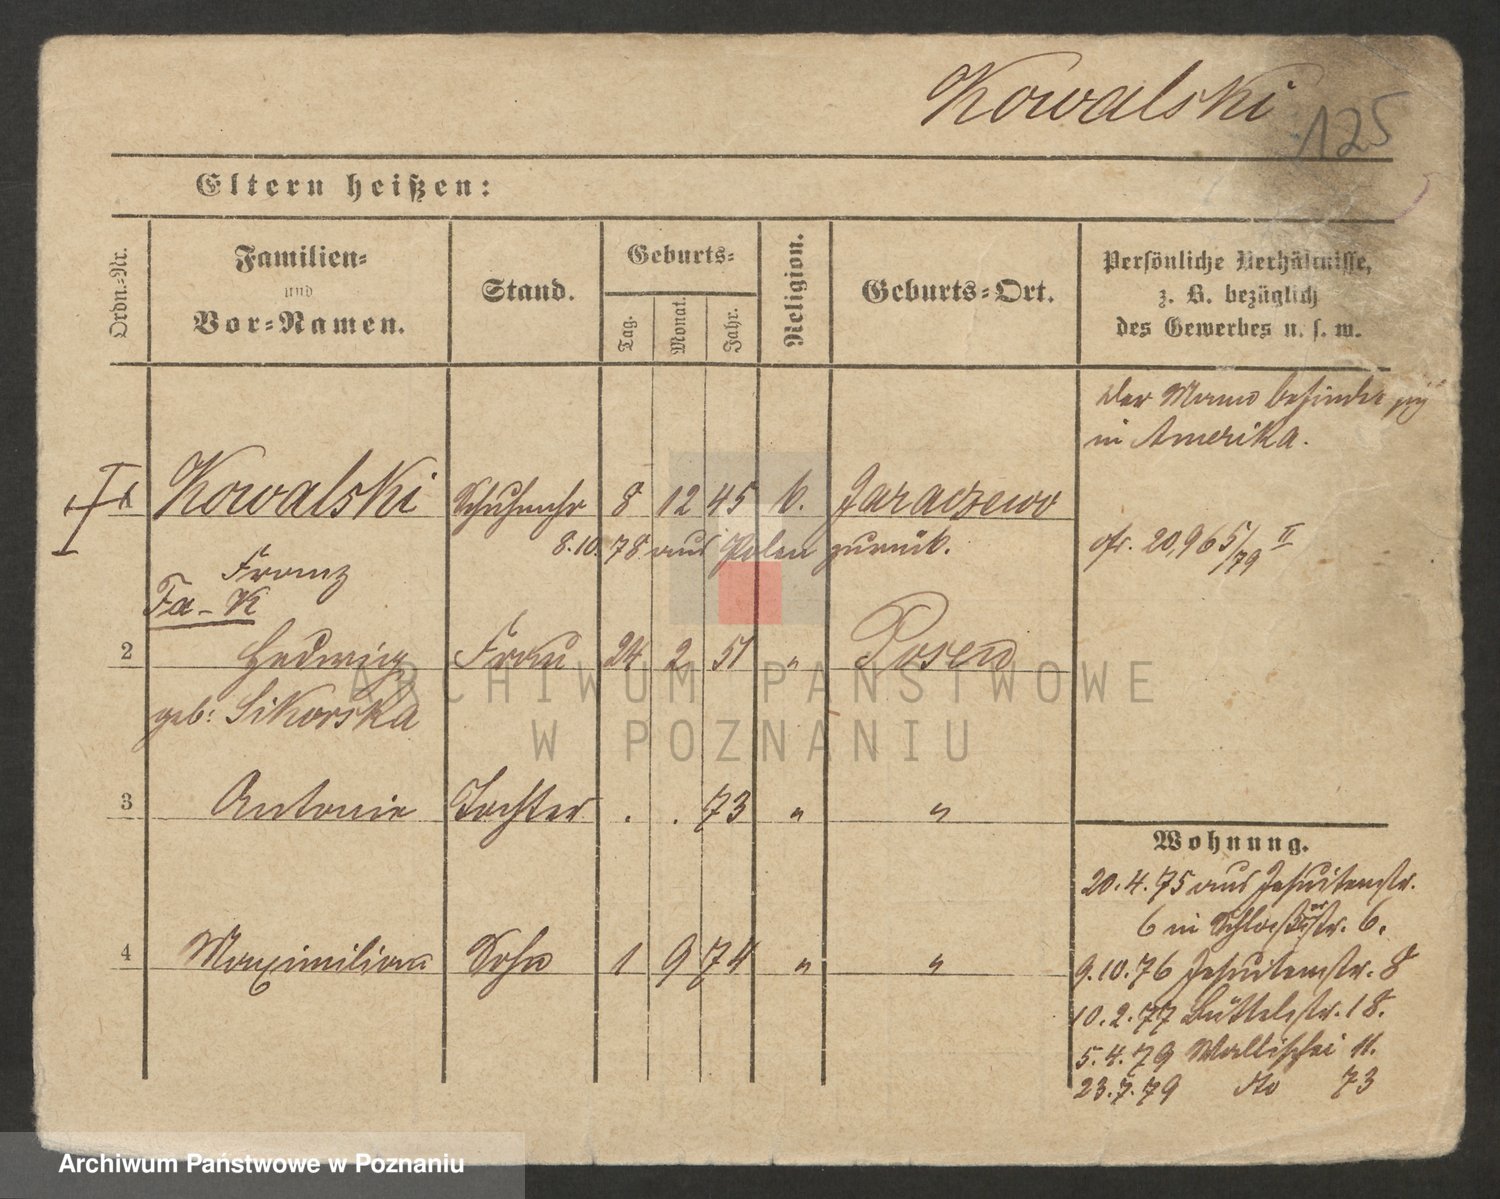 Kowalski
125
Eltern heißen:
Ordn.-Nr.
Familien-
und
Vor-Namen.
Stand.
Geburts-
Tag.
Monat.
Jahr.
Religion.
Geburts-Ort.
Persönliche Verhältnisse,
z. B. bezüglich
des Gewerbes u. s. w.
Der Mann befindet sich
in Amerika.
Kowalski Schuhmchr 8 12 45 k. Jaraczewo
8.10.78 aus Polen zurück.
20,965/79 II
Franz
Fa - K
2 Hedwig Frau 24 2 51 " Posen
geb: Sikorska
3 Antonie Tochter . . 73 " "
4 Maximilian Sohn 1 9 74 " "
Wohnung.
20.4.75 aus Jesuitenstr.
6 in Schloßstr. 6.
9.10.76 Jesuitenstr. 8
10.2.77 Büttelstr. 18.
5.4.79 Wallischei 11.
23.7.79 dto 73
ARCHIWUM PAŃSTWOWE
W POZNANIU
Archiwum Państwowe w Poznaniu